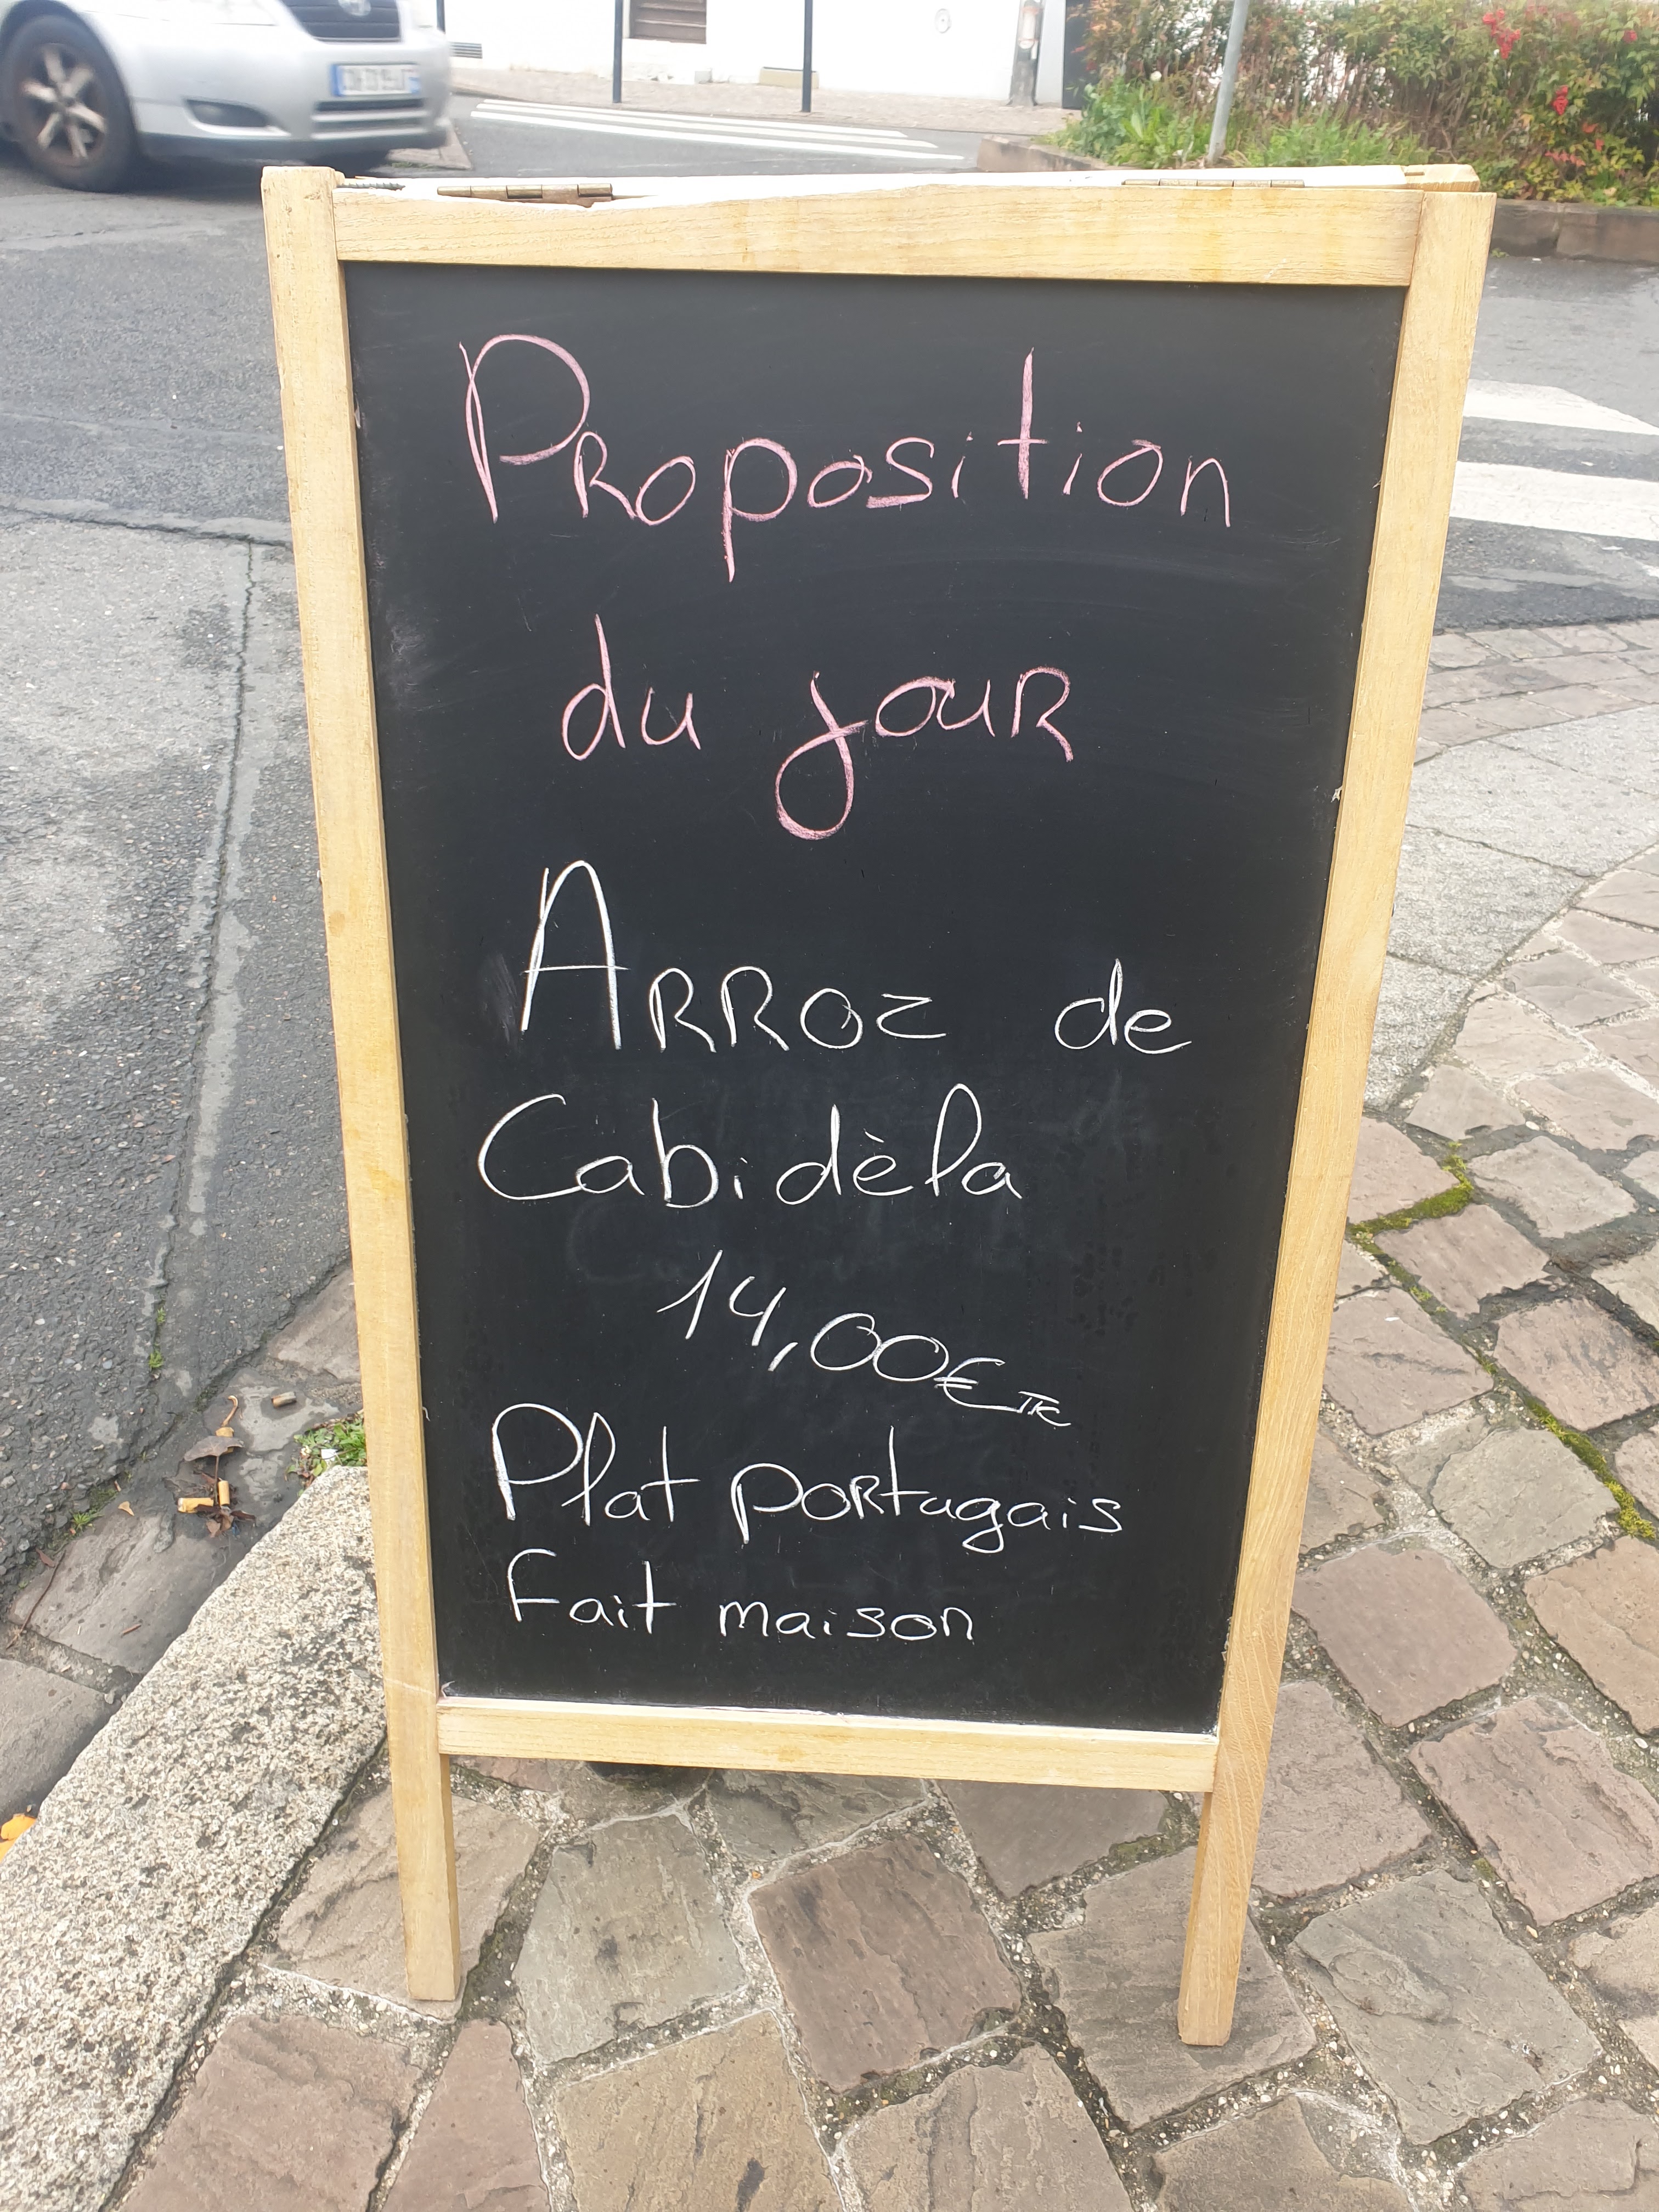 Proposition
du jour
Arroz de
Cabidèla
14,00€ TTC
Plat portugais
Fait maison